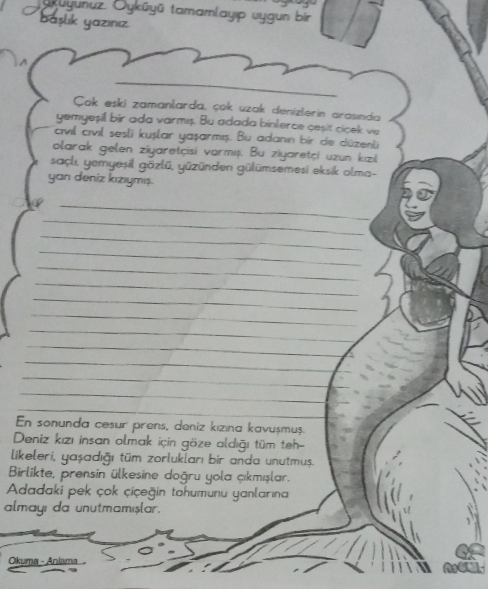 okuyunuz. Öyküyü tamamlayıp uygun bir
başlık yazınız.
Çok eski zamanlarda, çok uzak denizlerin arasında
yemyeşil bir ada varmış. Bu adada binlerce çeşit çiçek ve
cıvıl cıvıl sesli kuşlar yaşarmış. Bu adanın bir de düzenli
olarak gelen ziyaretçisi varmış. Bu ziyaretçi uzun kızıl
saçlı, yemyeşil gözlü, yüzünden gülümsemesi eksik olma-
yan deniz kızıymış.
En sonunda cesur prens, deniz kızına kavuşmuş.
Deniz kızı insan olmak için göze aldığı tüm teh-
likeleri, yaşadığı tüm zorlukları bir anda unutmuş.
Birlikte, prensin ülkesine doğru yola çıkmışlar.
Adadaki pek çok çiçeğin tohumunu yanlarına
almayı da unutmamışlar.
Okuma - Anlama